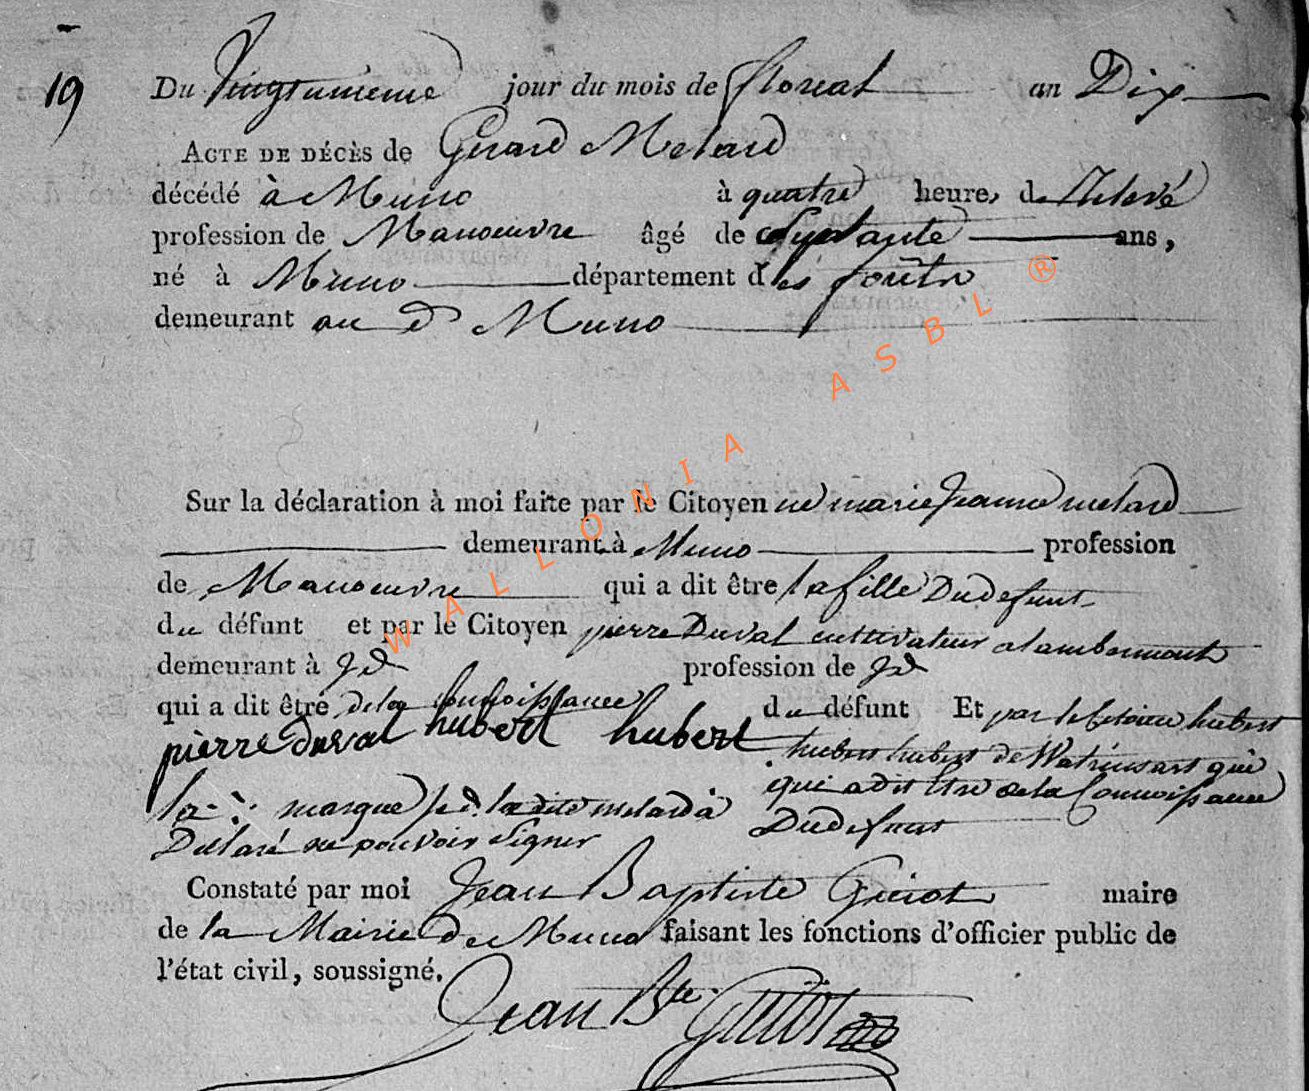 19
Du Vingtunieme jour du mois de floreal an Dix
ACTE DE DÉCÈS de Gerard Melard
décédé à Muno à quatre heures de
profession de Manoeuvre âgé de Septante ans,
né à Muno département des forêts
demeurant au d Muno
Sur la déclaration à moi faite par le Citoyen ne marie Jeanne melard
demeurant à Muno profession
de Manoeuvre qui a dit être la fille Du defunt
du défunt et par le Citoyen pierre Duval cultivateur a lambermont
demeurant à Jd profession de Jd
qui a dit être de la Connoissance du défunt Et par le Citoien hubert
pierre duval hubert hubert
hubert hubert de Watrinsart qui
qui a dit Etre de la Connoissance
Du defunt
la marque de ladite melard a
Declaré ne pouvoir Signer
Constaté par moi Jean Baptiste Guiot maire
de la Mairie de Muno faisant les fonctions d'officier public de
l'état civil, soussigné.
Jean Bte Guiot
WALLONIA ASBL ®